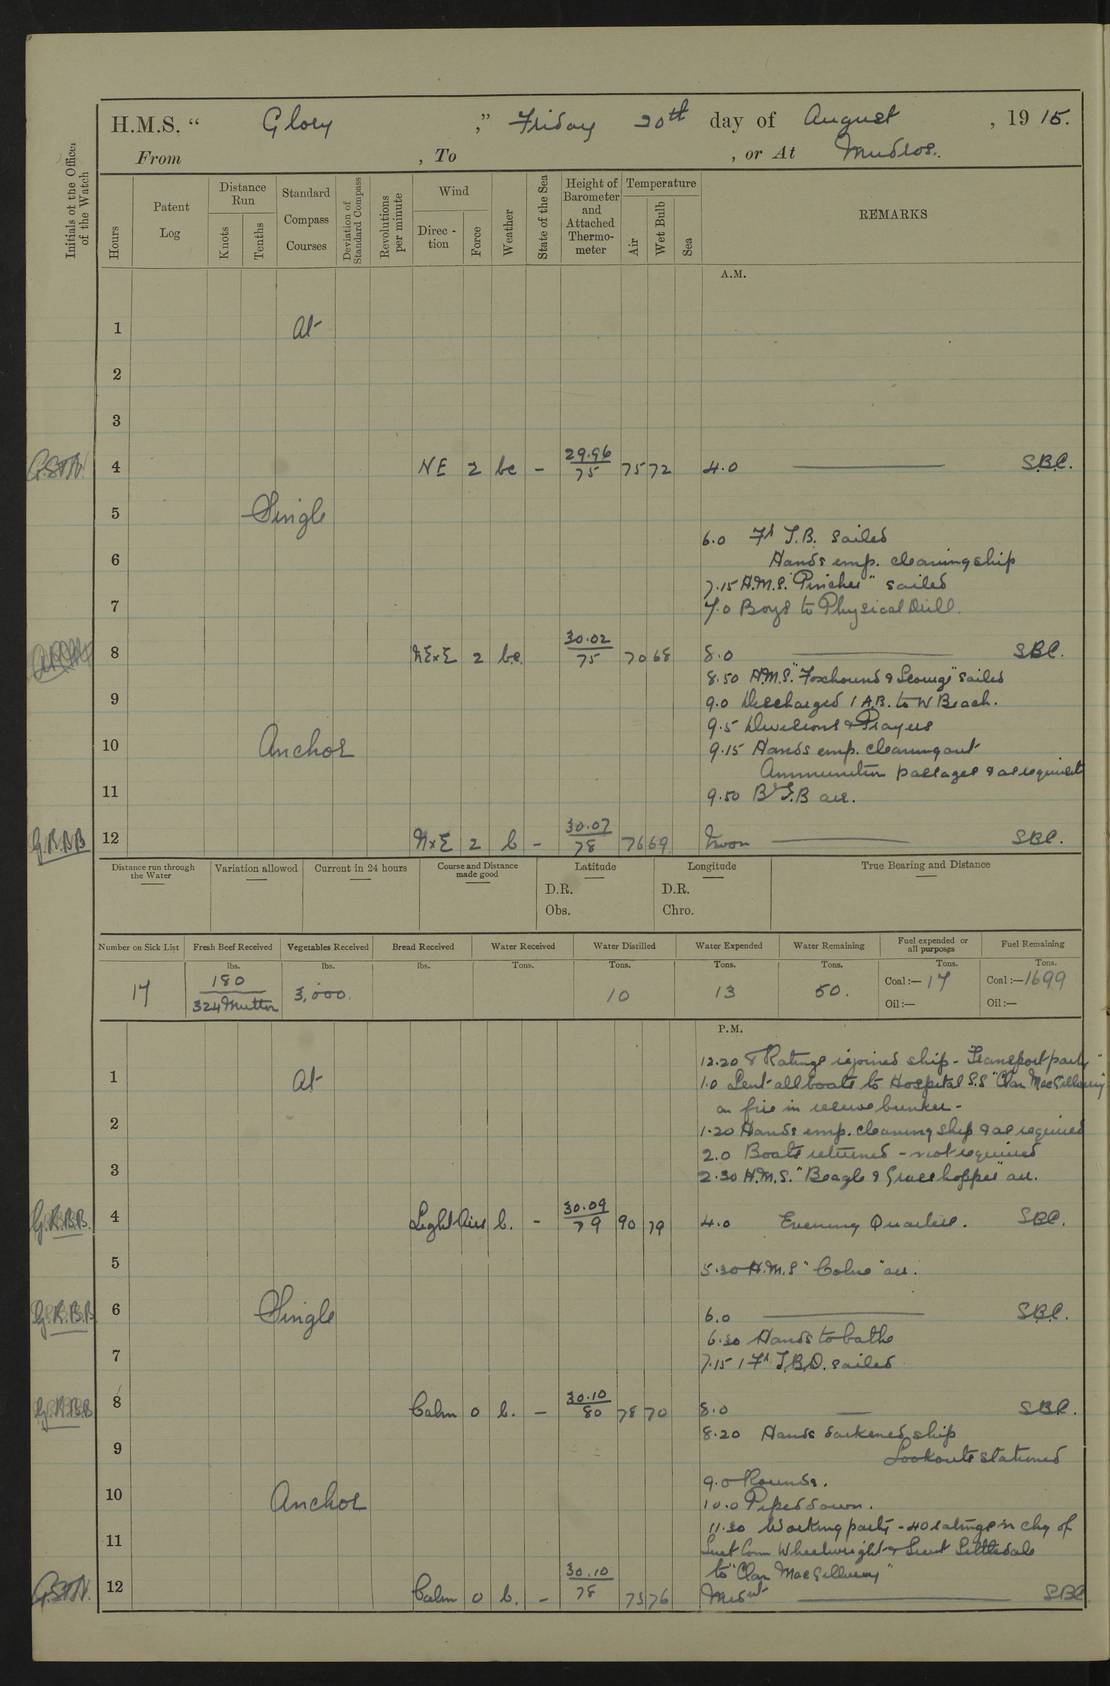 H.M.S. “ Glory ,” Friday 20th day of August , 19 15.
From , To , or At Mudros.
Initials of the Officer of the Watch
Hours
Patent Log
Distance Run
Knots
Tenths
Standard Compass Courses
Deviation of Standard Compass
Revolutions per minute
Wind
Direction
Force
Weather
State of the Sea
Height of Barometer and Attached Thermometer
Temperature
Air
Wet Bulb
Sea
REMARKS
A.M.
1 At
2
3
4 NE 2 bc - 29.96 75 75 72 4.0 S.B.C.
5 Single
6.0 Fr T.B. sailed
6 Hands emp. cleaning ship
7.15 H.M.S. "Pincher" sailed
7 7.0 Boys to Physical Drill.
8 NExE 2 bc. 30.02 75 70 68 8.0 S.B.C.
8.50 H.M.S. "Foxhound & Scourge" sailed
9 9.0 Discharged 1 A.B. to W Beach.
9.5 Divisions & Prayers
10 Anchor 9.15 Hands emp. cleaning out
Ammunition passages & as requisite
11 9.50 Br T.B arr.
G.R.B.B 12 NxE 2 b - 30.07 78 76 69 Noon S.B.C.
Distance run through the Water
Variation allowed
Current in 24 hours
Course and Distance made good
Latitude
D.R.
Obs.
Longitude
D.R.
Chro.
True Bearing and Distance
Number on Sick List
Fresh Beef Received
Vegetables Received
Bread Received
Water Received
Water Distilled
Water Expended
Water Remaining
Fuel expended or all purposes
Fuel Remaining
lbs. lbs. lbs. Tons. Tons. Tons. Tons. Tons. Tons.
17 180 324 Mutton 3,000 10 13 50. Coal:— 17 Coal:— 1699
Oil:— Oil:—
P.M.
12.20 8 Ratings rejoined ship - Transport party -
1 At 1.0 Sent all boats to Hospital S.S "Clan MacGillivray"
on fire in reserve bunker -
2 1.20 Hands emp. cleaning ship & as required
2.0 Boats returned - not required
3 2.30 H.M.S. "Beagle & Grasshopper" arr.
G.R.B.B. 4 Light Airs b. - 30.09 79 90 79 4.0 Evening Quarters. S.B.C.
5 5.30 H.M.S "Colne" arr.
G.R.B.B 6 Single 6.0 S.B.C.
6.30 Hands to bathe
7 7.15 1 Fr T.B.D. sailed
G.R.B.B 8 Calm 0 b. - 30.10 80 78 70 8.0 S.B.C.
8.20 Hands darkened ship
9 Lookouts stationed
9.0 Rounds.
10 Anchor 10.0 Piped down.
11.30 Working party - 40 ratings in chg of
11 Lieut Com Wheelwright & Lieut Littledale
to "Clan MacGillivray"
12 Calm 0 b. - 30.10 78 75 76 Midnt S.B.C